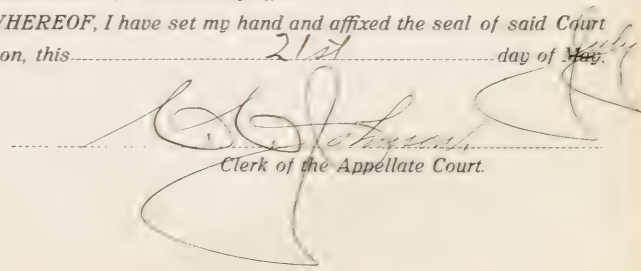 WHEREOF, I have set my hand and affixed the seal of said Court
on, this 21st day of May. July
Johnson.
Clerk of the Appellate Court.